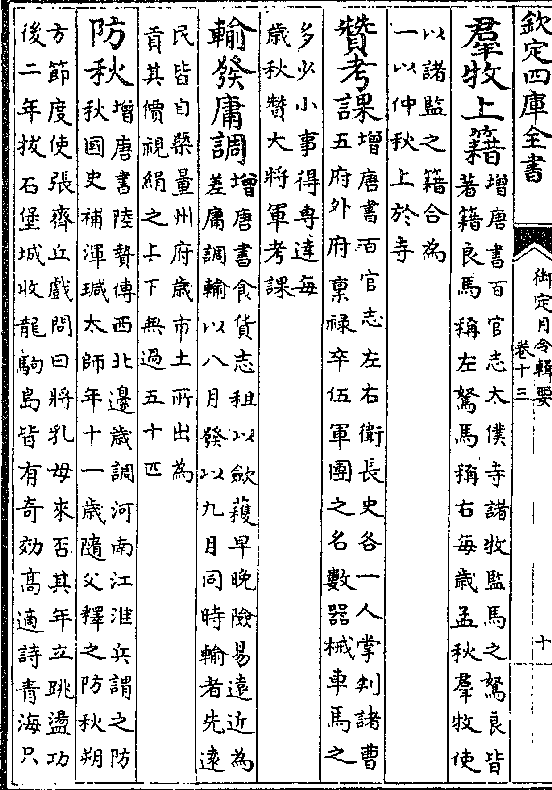 欽定四庫全書
御定月令輯要
卷十三
十
羣牧上籍增唐書百官志太僕寺諸牧監馬之駑良皆
著籍良馬稱左駑馬稱右每歲孟秋羣牧使
以諸監之籍合為
一以仲秋上於寺
贊考課增唐書百官志左右衛長史各一人掌判諸曹
五府外府稟祿卒伍軍團之名數器械車馬之
多少小事得專達每
歲秋贊大將軍考課
輸發庸調增唐書食貨志租以斂穫早晚險易遠近為
差庸調輸以八月發以九月同時輸者先遠
民皆自槩量州府歲市土所出為
貢其價視絹之上下無過五十匹
防秋增唐書陸贄傳西北邊歲調河南江淮兵謂之防
秋國史補渾瑊太師年十一歲隨父釋之防秋朔
方節度使張齊丘戲問曰將乳母來否其年立跳盪功
後二年拔石堡城收龍駒島皆有奇効高適詩青海只